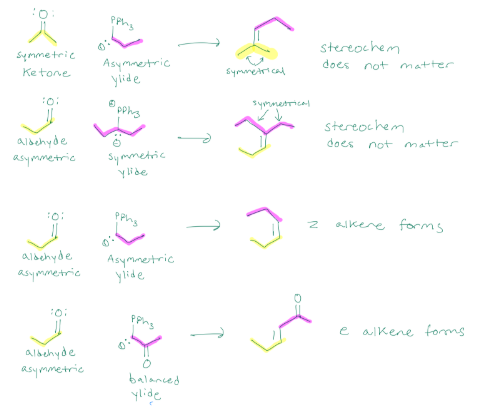 :O:
PPh3
symmetric
Ketone
Asymmetric
ylide
symmetrical
stereochem
does not matter
:O:
⊕
PPh3
⊖
aldehyde
asymmetric
symmetric
ylide
symmetrical
stereochem
does not matter
:O:
PPh3
⊖:
aldehyde
asymmetric
Asymmetric
ylide
z alkene forms
:O:
PPh3
O
O
aldehyde
asymmetric
balanced
ylide
e alkene forms